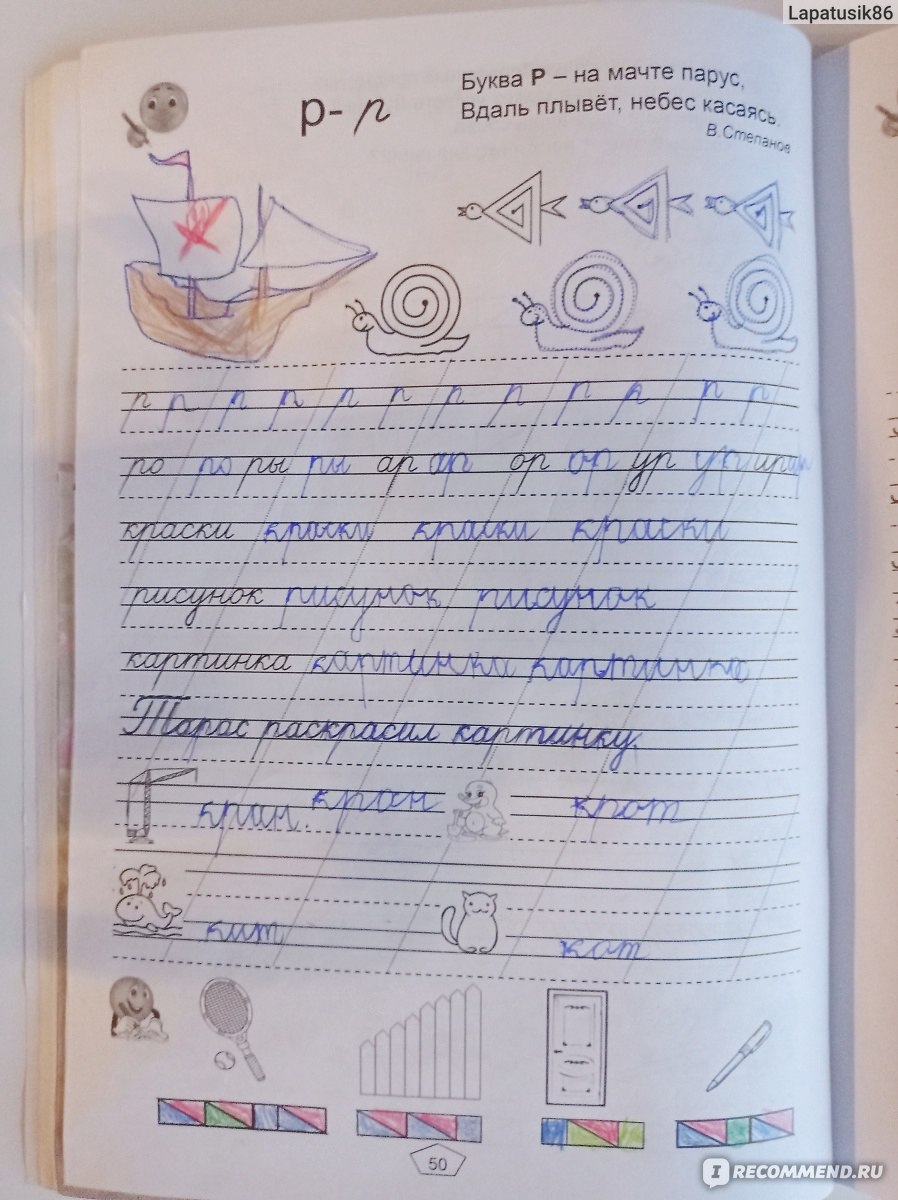 Lapatusik86
Буква Р – на мачте парус,
Вдаль плывёт, небес касаясь.
В. Степанов
р- р
р р р р р р р р р р р р
ро ро ры ры ар ар ор ор ур ур ир ир
краски краски краски краски
рисунок рисунок рисунок
картинка картинка картинка
Тарас раскрасил картинку.
кран. кран крот
кит кот
50
IRECOMMEND.RU